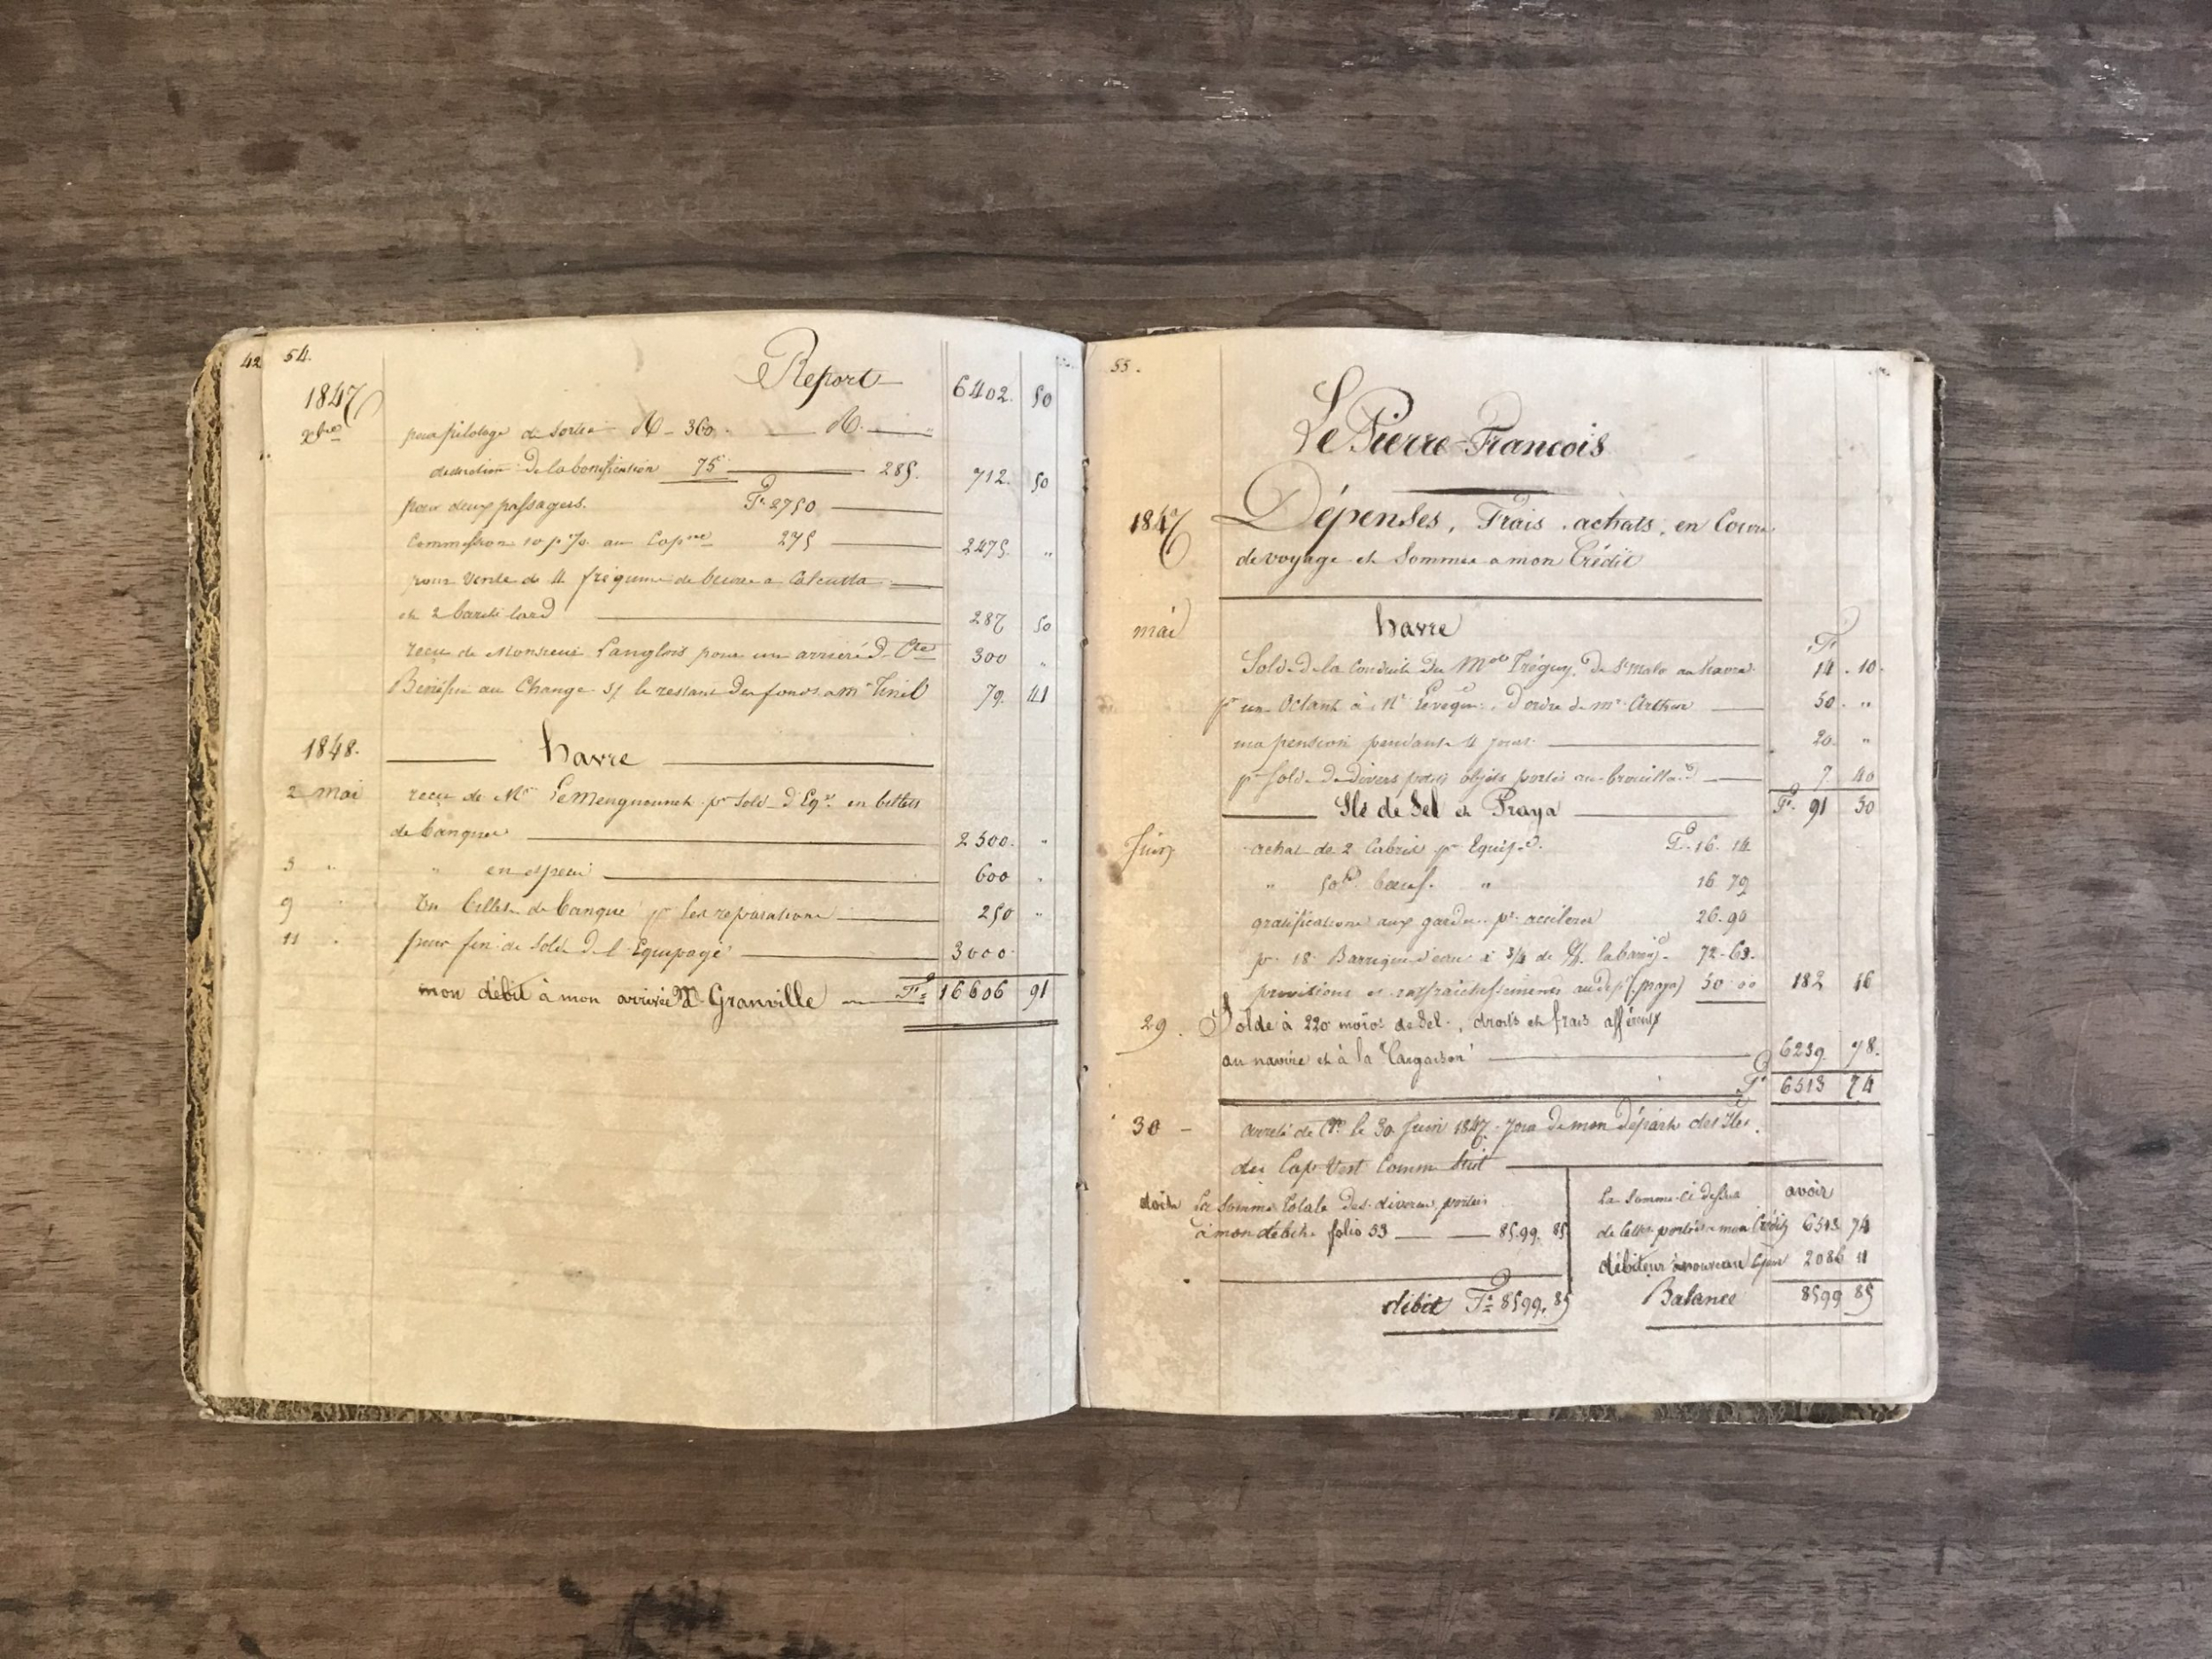 42 54.
Report 6402. 50
1847
xbre pour pilotage de Sortie R - 360. R.
deduction de la bonification 75 285. 712. 50
pour deux passagers. Fs 2750
Commission 10 p % au Capne 275 2475. "
pour Vente de 4 de beurre a Calcutta
et 2 barils lard 287 50
reçu de Monsieur Langlois pour un arriéré d. Cte 300 "
Benefice au Change s/ le restant des fonds a mr 79. 41
1848. havre
2 mai reçu de Mr p. Sold. d'Eqe. en billets
de banque 2500. "
3 " " en espece 600 "
9 " En billets de banque pr les reparations 250 "
11 " pour fin de Solde de l'Equipage 3000
mon débit à mon arrivée à Granville Fs 16606 91
55.
Le Pierre-François
1847 Dépenses, Frais, achats, en Cours
de voyage et Sommes a mon Crédit
mai havre
Fs
Solde de la Conduite du Mot Tréguy. De St malo au havre 14. 10.
pr un Octant à Mr Levêque. d'ordre de mr Arthur 50. "
ma pension pendant 4 jours 20. "
pr Solde de divers petits objets portés au brouillard 7. 40
Fs. 91 50
Ile de Sel et Praya
Juin achat de 2 Cabris pr Equipe. Fs. 16. 14
" 50 boeuf. " 16 79
gratifications aux gardes pr accelerer 26. 90
pr 18 Barriques d'eau à 3/4 de la barrq. 72-63.
provisions et raffraichissements au dept (praya) 50 00 182 16
29. Solde à 220 moios de Sel, droits et frais afférents
au navire et à la Cargaison 6239. 78.
Fs 6513 74
30 - arreté de Cte le 30 Juin 1847. Jour de mon Départ des Iles
du Cap Vert Comme Suit
doit La Somme totale des divers portés
à mon debit folio 53 8599. 85
débit Fs 8599. 85
La Somme ci dessus avoir
de celles portées a mon Crédit 6513 74
débiteur à nouveau 2086 11
Balance 8599 85